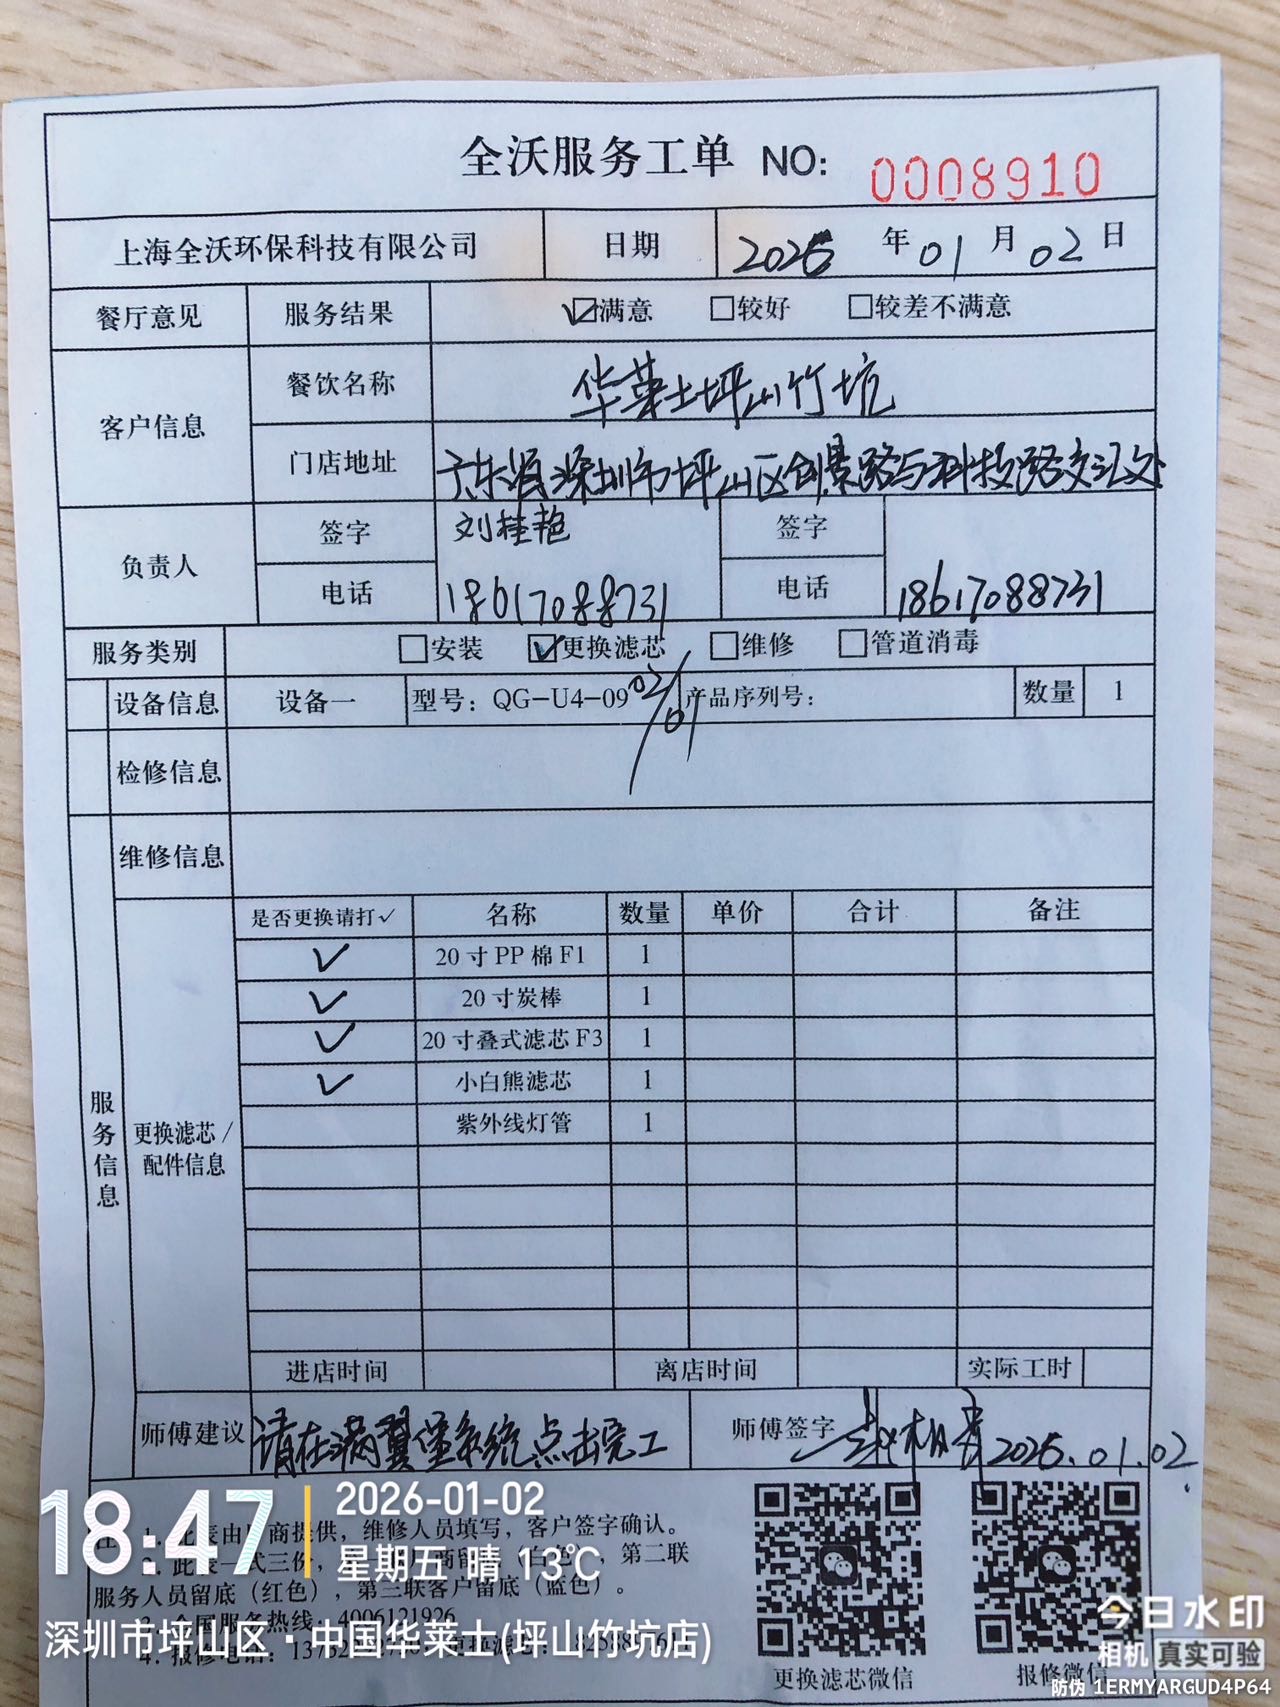 全沃服务工单 NO: 0008910
上海全沃环保科技有限公司 日期 2026 年 01 月 02 日
餐厅意见 服务结果 ☑满意 □较好 □较差不满意
客户信息 餐饮名称 华莱士坪山竹坑
门店地址 广东省深圳市坪山区创景路与科技路交汇处
负责人 签字 刘桂艳 签字
电话 18617088731 电话 18617088731
服务类别 □安装 ☑更换滤芯 □维修 □管道消毒
设备信息 设备一 型号：QG-U4-09 02/01 产品序列号： 数量 1
检修信息
维修信息
是否更换请打✓ 名称 数量 单价 合计 备注
✓ 20寸PP棉F1 1
✓ 20寸炭棒 1
✓ 20寸叠式滤芯F3 1
✓ 小白熊滤芯 1
紫外线灯管 1
服务信息
更换滤芯/
配件信息
进店时间 离店时间 实际工时
师傅建议 请在满翼堡系统点击完工 师傅签字 2026.01.02
1. 此表由厂商提供，维修人员填写，客户签字确认。
2. 此表一式三份，商留（白色），第二联
服务人员留底（红色），第三联客户留底（蓝色）。
3. 全国服务热线：4006121926
4. 报修电话：
更换滤芯微信 报修微信
18:47
2026-01-02
星期五 晴 13℃
深圳市坪山区·中国华莱士(坪山竹坑店)
今日水印
相机 真实可验
防伪 1ERMYARGUD4P64